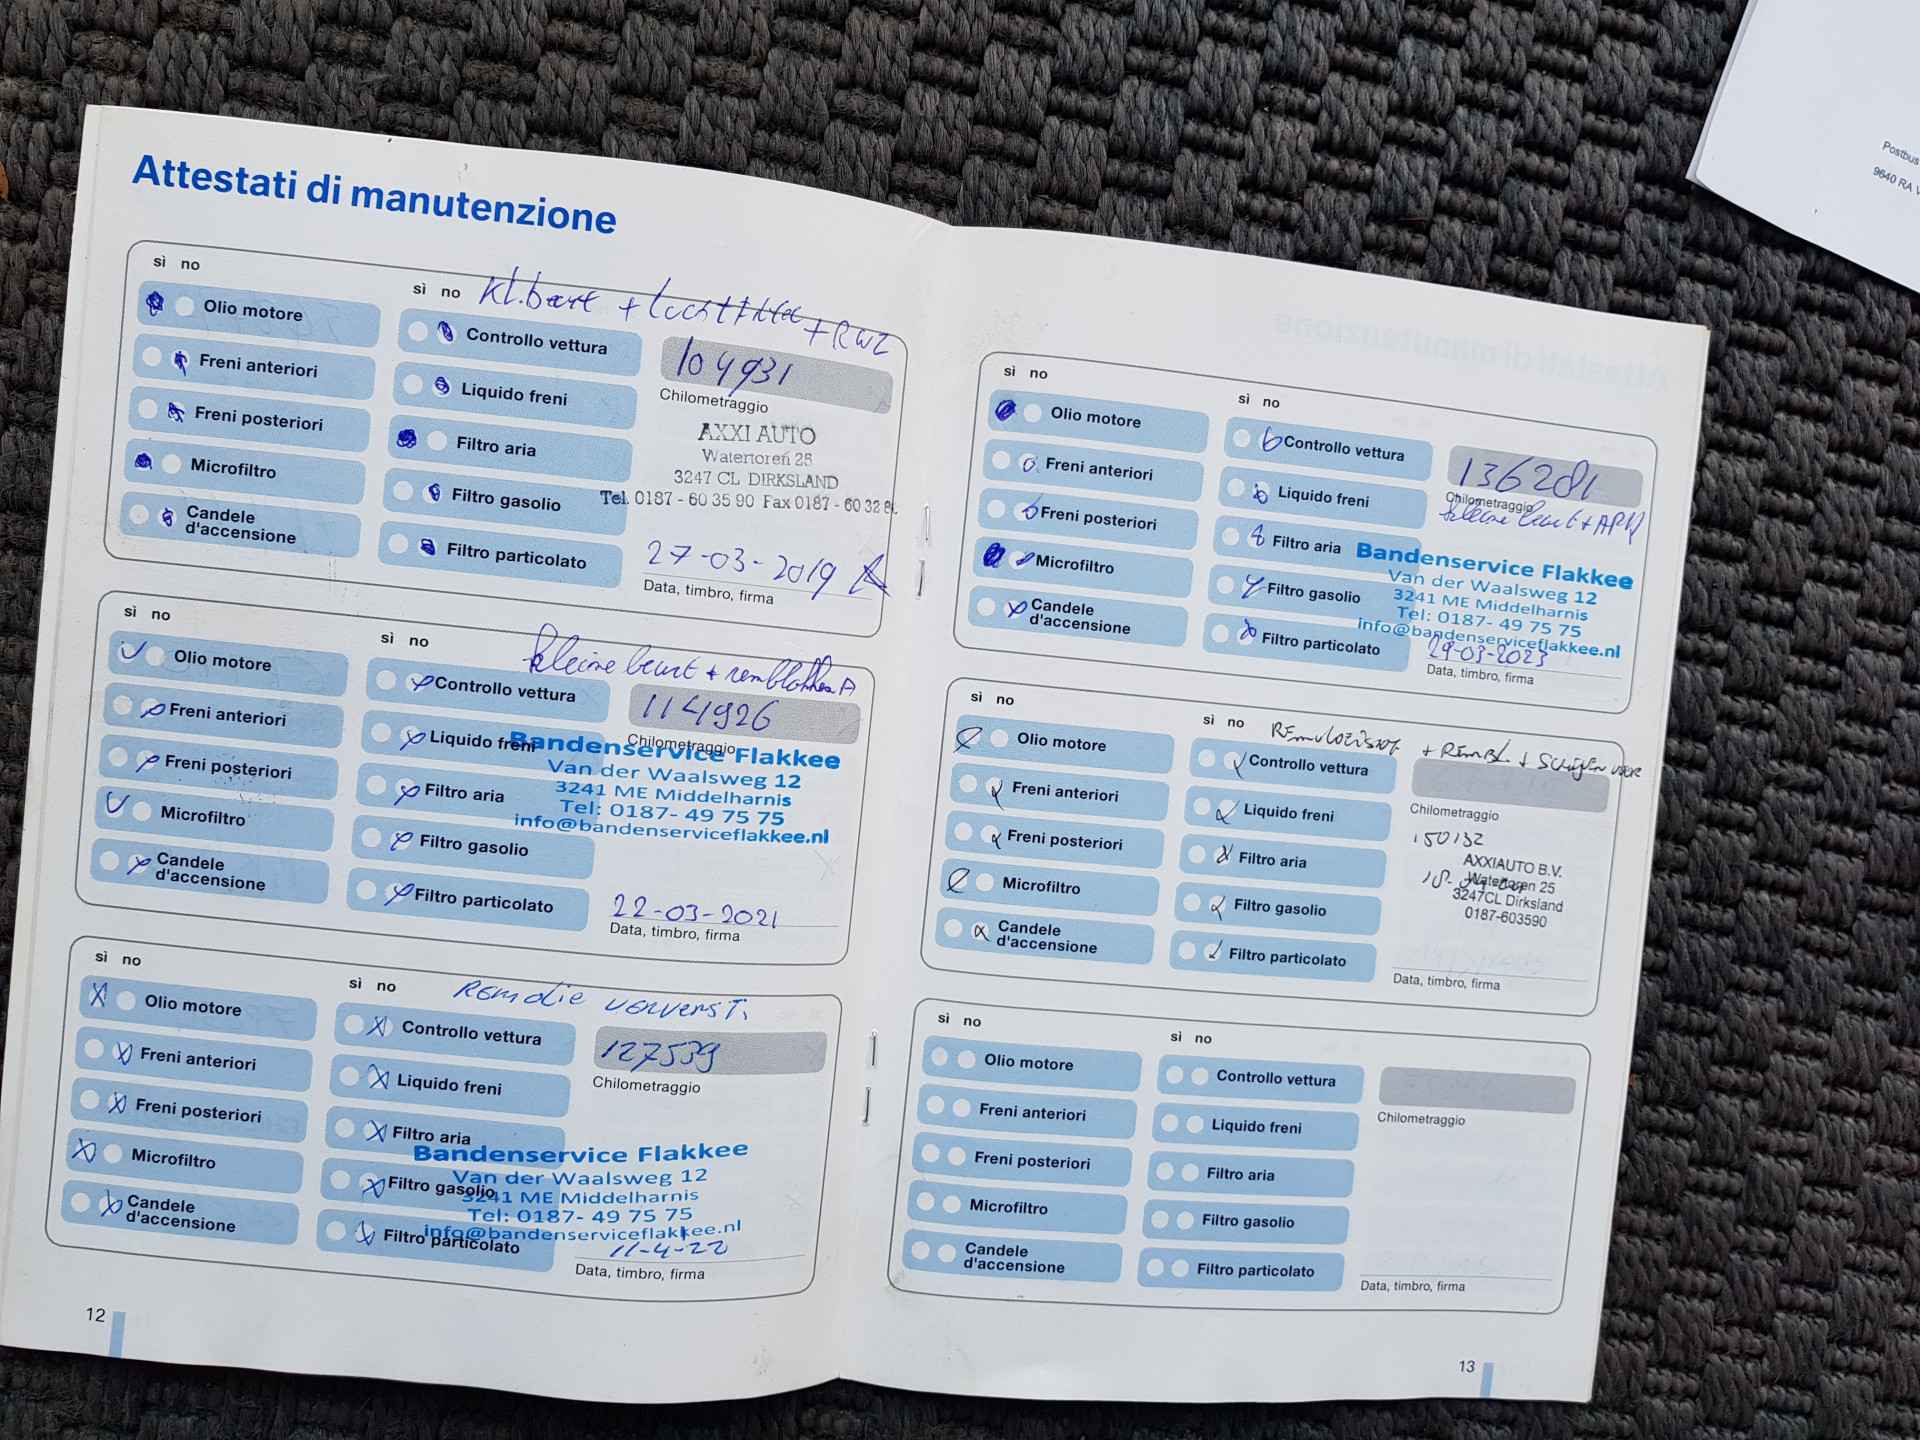 Attestati di manutenzione
sì no
Olio motore
Freni anteriori
Freni posteriori
Microfiltro
Candele
d'accensione
sì no
Kl. beurt + luchtfilter + RWZ
Controllo vettura
Liquido freni
Filtro aria
Filtro gasolio
Filtro particolato
104931
Chilometraggio
AXXI AUTO
Watertoren 25
3247 CL DIRKSLAND
Tel. 0187 - 60 35 90 Fax 0187 - 60 32 8
27-03-2019
Data, timbro, firma
sì no
Olio motore
Freni anteriori
Freni posteriori
Microfiltro
Candele
d'accensione
sì no
kleine beurt + remblokken A
Controllo vettura
Liquido freni
Filtro aria
Filtro gasolio
Filtro particolato
114926
Chilometraggio
Bandenservice Flakkee
Van der Waalsweg 12
3241 ME Middelharnis
Tel: 0187- 49 75 75
info@bandenserviceflakkee.nl
22-03-2021
Data, timbro, firma
sì no
Olio motore
Freni anteriori
Freni posteriori
Microfiltro
Candele
d'accensione
sì no
REMOLIE VERVERST.
Controllo vettura
Liquido freni
Filtro aria
Filtro gasolio
Filtro particolato
127539
Chilometraggio
Bandenservice Flakkee
Van der Waalsweg 12
3241 ME Middelharnis
Tel: 0187- 49 75 75
info@bandenserviceflakkee.nl
11-4-22
Data, timbro, firma
12
sì no
Olio motore
Freni anteriori
Freni posteriori
Microfiltro
Candele
d'accensione
sì no
Controllo vettura
Liquido freni
Filtro aria
Filtro gasolio
Filtro particolato
136281
Chilometraggio
kleine beurt + APK
Bandenservice Flakkee
Van der Waalsweg 12
3241 ME Middelharnis
Tel: 0187- 49 75 75
info@bandenserviceflakkee.nl
29-03-2023
Data, timbro, firma
sì no
Olio motore
Freni anteriori
Freni posteriori
Microfiltro
Candele
d'accensione
sì no
REMVLOEISTOF + REMBL. + SCHIJVEN VOOR
Controllo vettura
Liquido freni
Filtro aria
Filtro gasolio
Filtro particolato
Chilometraggio
150132
AXXIAUTO B.V.
Watertoren 25
3247CL Dirksland
0187-603590
Data, timbro, firma
sì no
Olio motore
Freni anteriori
Freni posteriori
Microfiltro
Candele
d'accensione
sì no
Controllo vettura
Liquido freni
Filtro aria
Filtro gasolio
Filtro particolato
Chilometraggio
Data, timbro, firma
13
Postbus
9640 RA